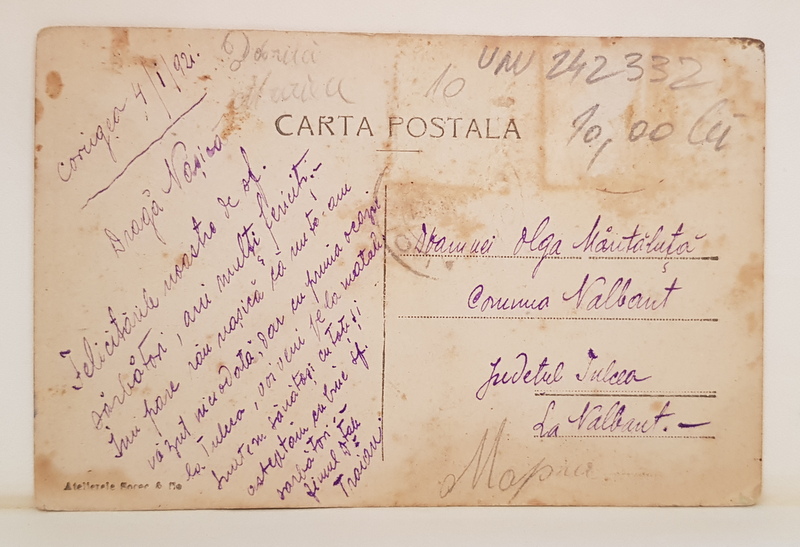 Coriugea 4/I/921.
UNU 242332
10
10,00 lei
CARTA POSTALA
Dragă Nașica
Felicitările noastre de sf.
sărbători, ani mulți fericiți.-
Îmi pare rău nașică că nu te-am
văzut niciodată, dar cu prima ocazie
la Tulcea, voi veni pe la matale
Suntem sănătoși cu toți și
așteptăm cu bine sf.
sărbători
Finul Dtale
Traian
Doamnei Olga Măntăluță
Comuna Nalbant
Județul Tulcea
La Nalbant.-
Atelierele Socec & Co